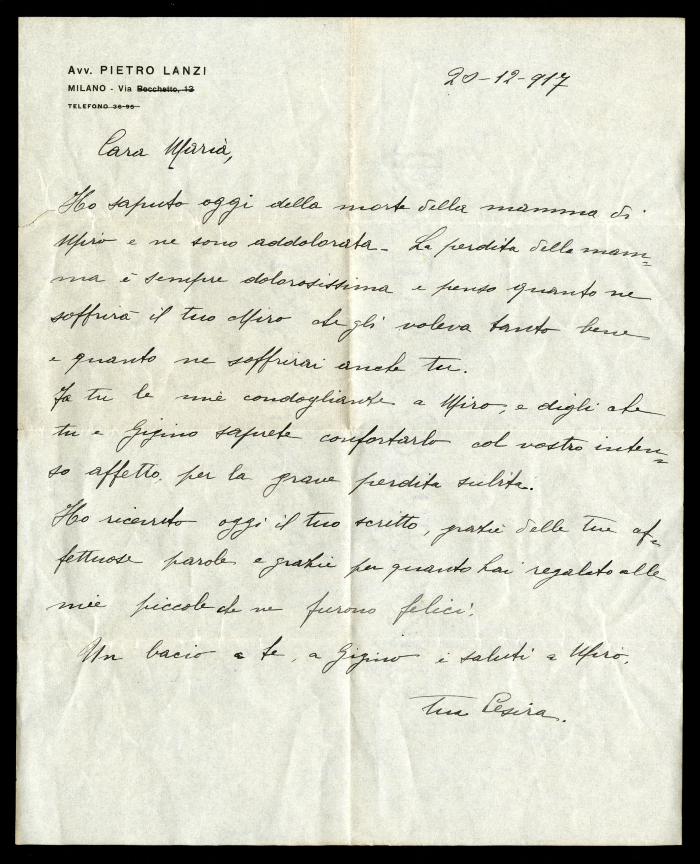 Avv. PIETRO LANZI
MILANO - Via Bocchetto, 13
TELEFONO 36-95
20-12-917
Cara Maria,
Ho saputo oggi della morte della mamma di
Miro e ne sono addolorata - La perdita della mam=
ma è sempre dolorosissima e penso quanto ne
soffrirà il tuo Miro che gli voleva tanto bene
e quanto ne soffrirai anche tu.
Fa tu le mie condoglianze a Miro, e digli che
tu e Gigino saprete confortarlo col vostro inten=
so affetto, per la grave perdita subita.
Ho ricevuto oggi il tuo scritto, grazie delle tue af=
fettuose parole e grazie per quanto hai regalato alle
mie piccole che ne furono felici.
Un bacio a te, a Gigino i saluti a Miro.
Tua